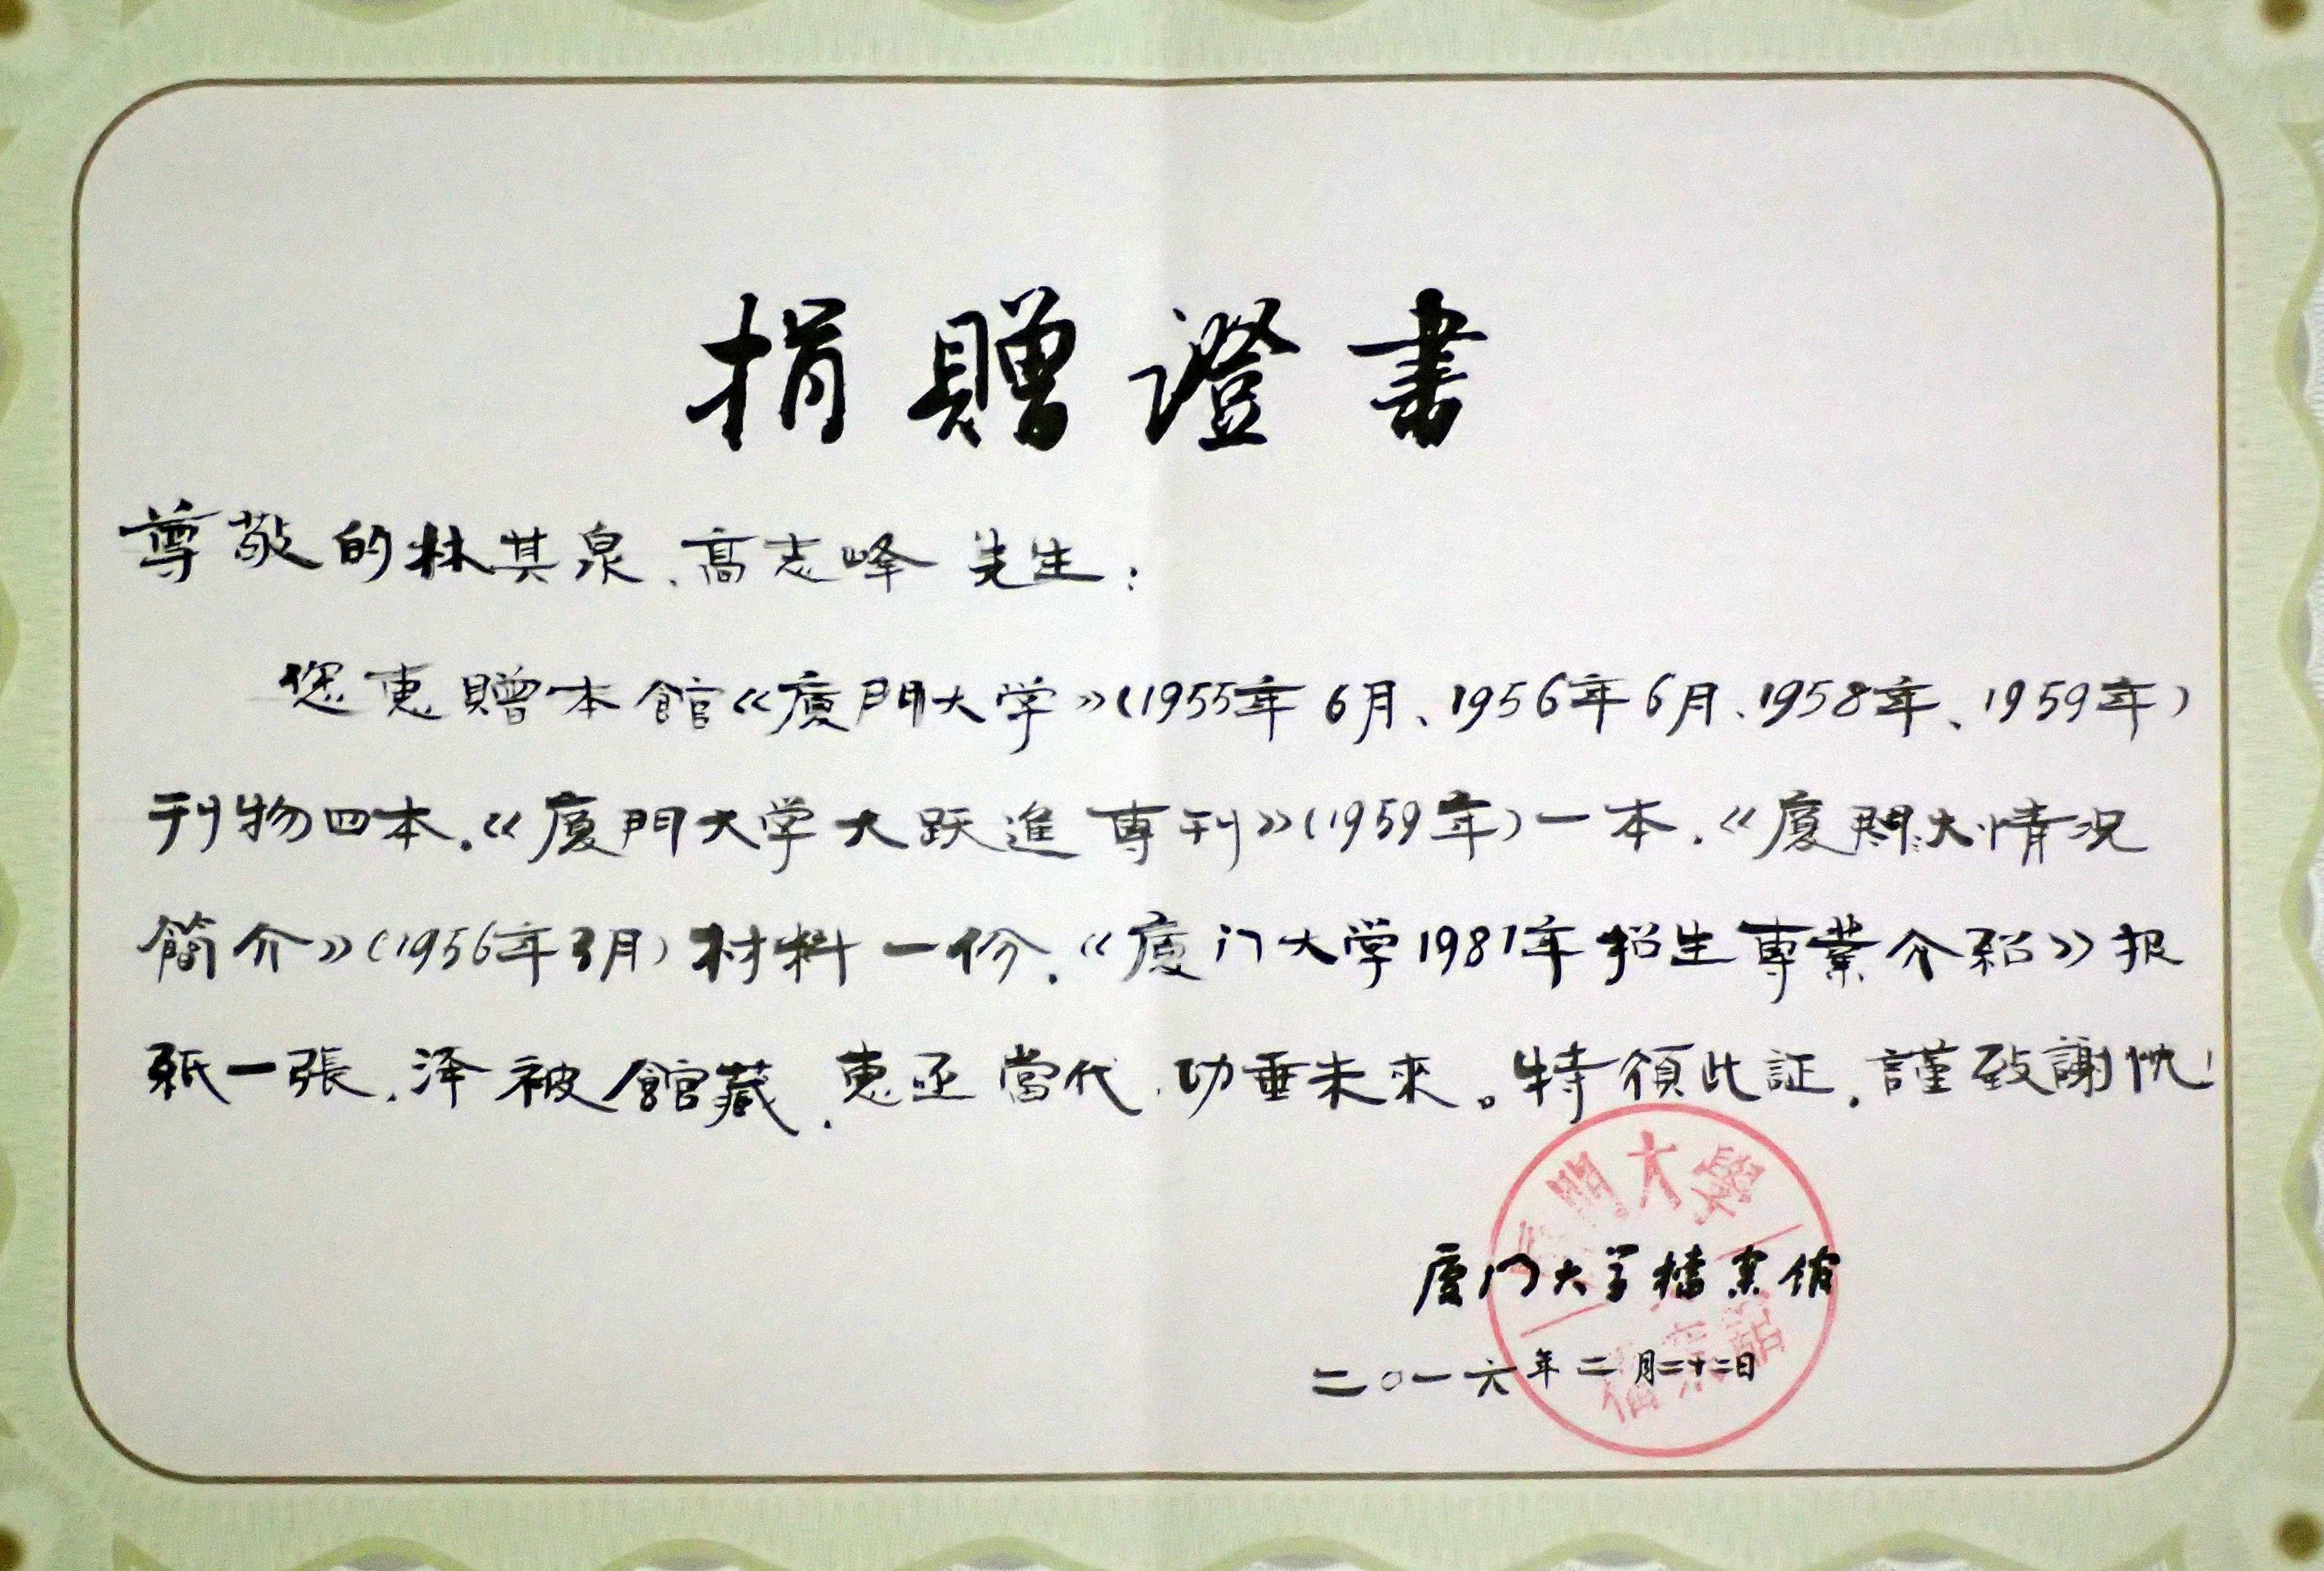 捐贈證書
尊敬的林其泉、高志峰 先生：
您惠贈本館《廈門大学》(1955年6月、1956年6月、1958年、1959年)
刊物四本，《廈門大学大跃進專刊》(1959年)一本，《廈門大情況
簡介》(1956年3月)材料一份，《廈门大学1981年招生專業介紹》报
紙一張，泽被館藏，惠丞當代，功垂未來。特頒此証，謹致謝忱！
廈門大學
厦门大学檔案馆
二〇一六年二月二十二日
檔案館